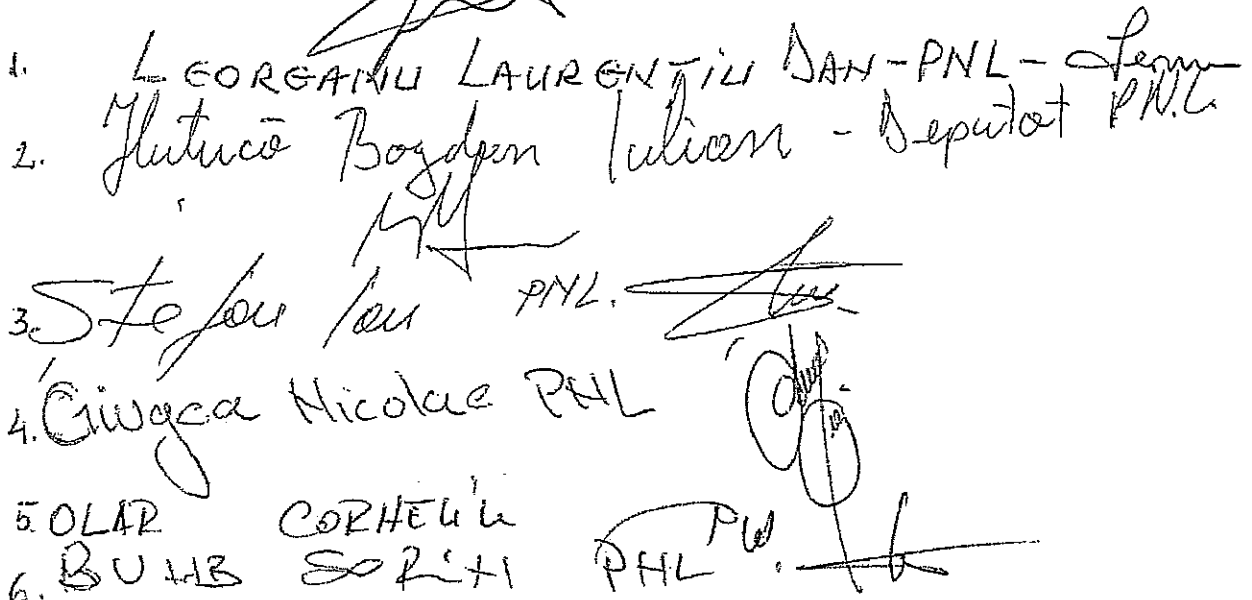 1. LEOREANU LAURENȚIU DAN-PNL-
2. Huțucă Bogdan Iulian - Deputat PNL
3. Ștefan Ion PNL.
4. Giugea Nicolae PNL
5. OLAR CORNELIU PNL
6. BUMB SORIN PNL